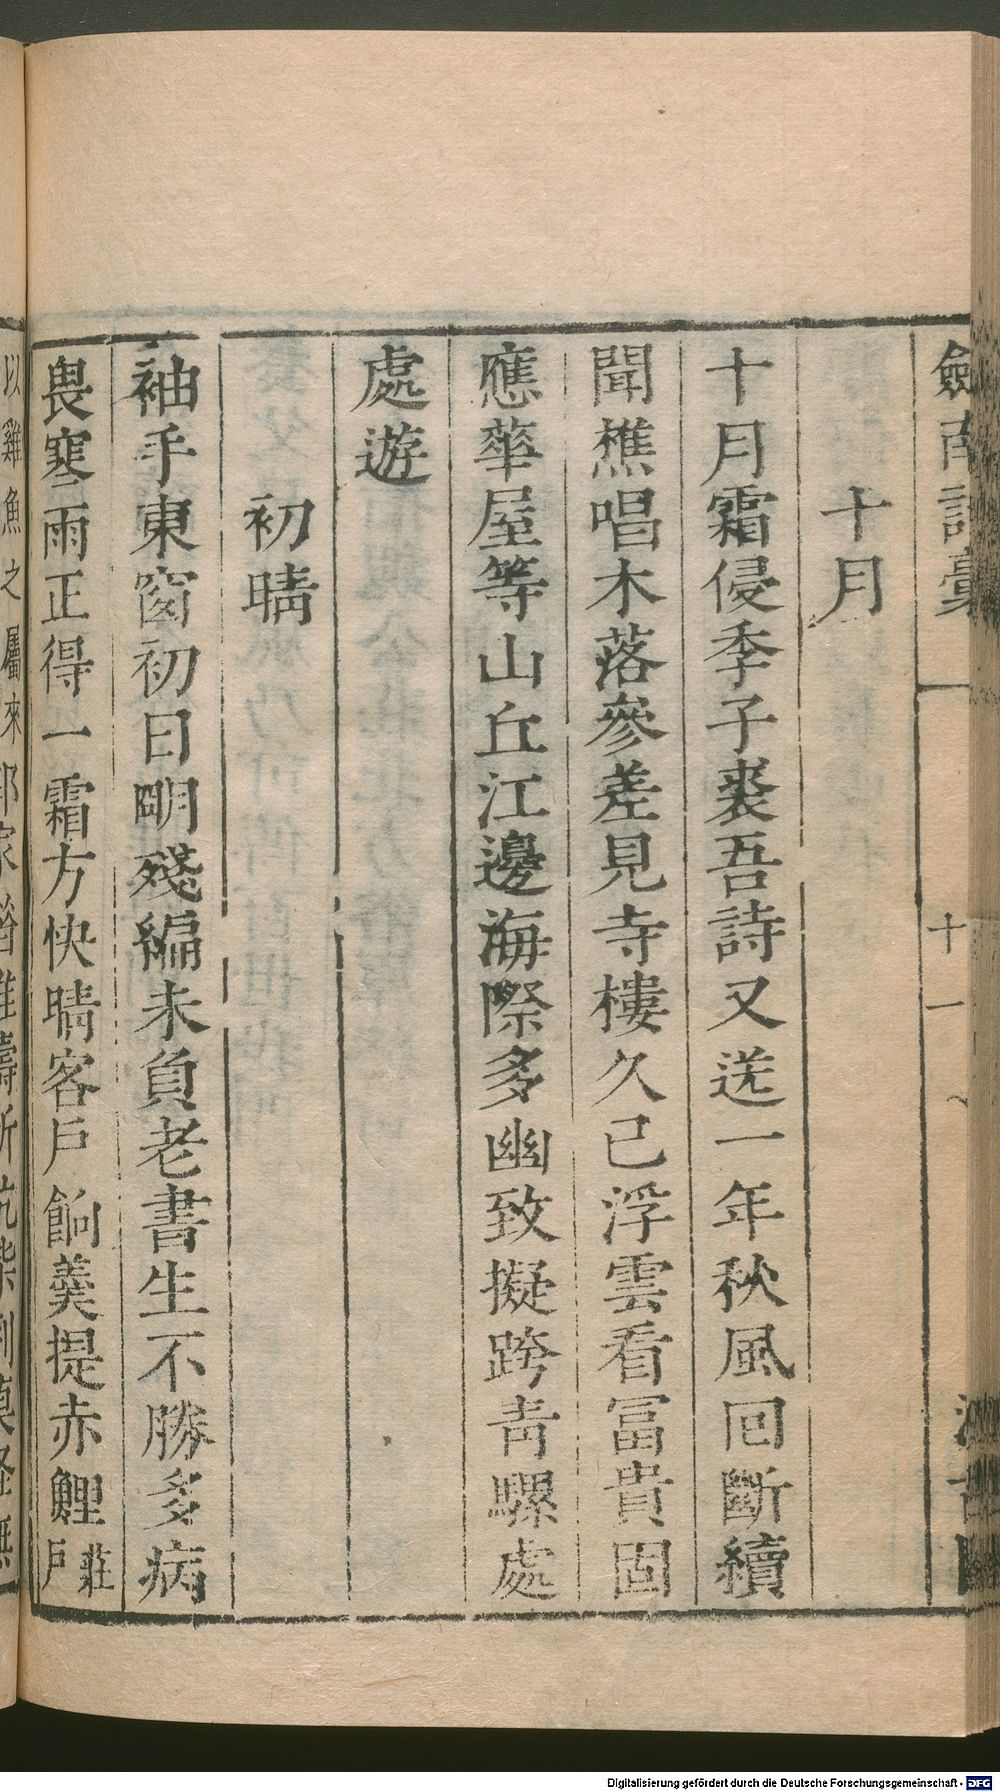 劍南詩稾　十一　汲古閣
十月
十月霜侵季子裘吾詩又送一年秋風回斷續
聞樵唱木落參差見寺樓久已浮雲看冨貴固
應華屋等山丘江邊海際多幽致擬跨青騾處
處遊
初晴
袖手東窗初日明殘編未負老書生不勝多病
畏寒雨正得一霜方快晴客戶餉羮提赤鯉莊戶
以雞魚之屬來
Digitalisierung gefördert durch die Deutsche Forschungsgemeinschaft - DFG